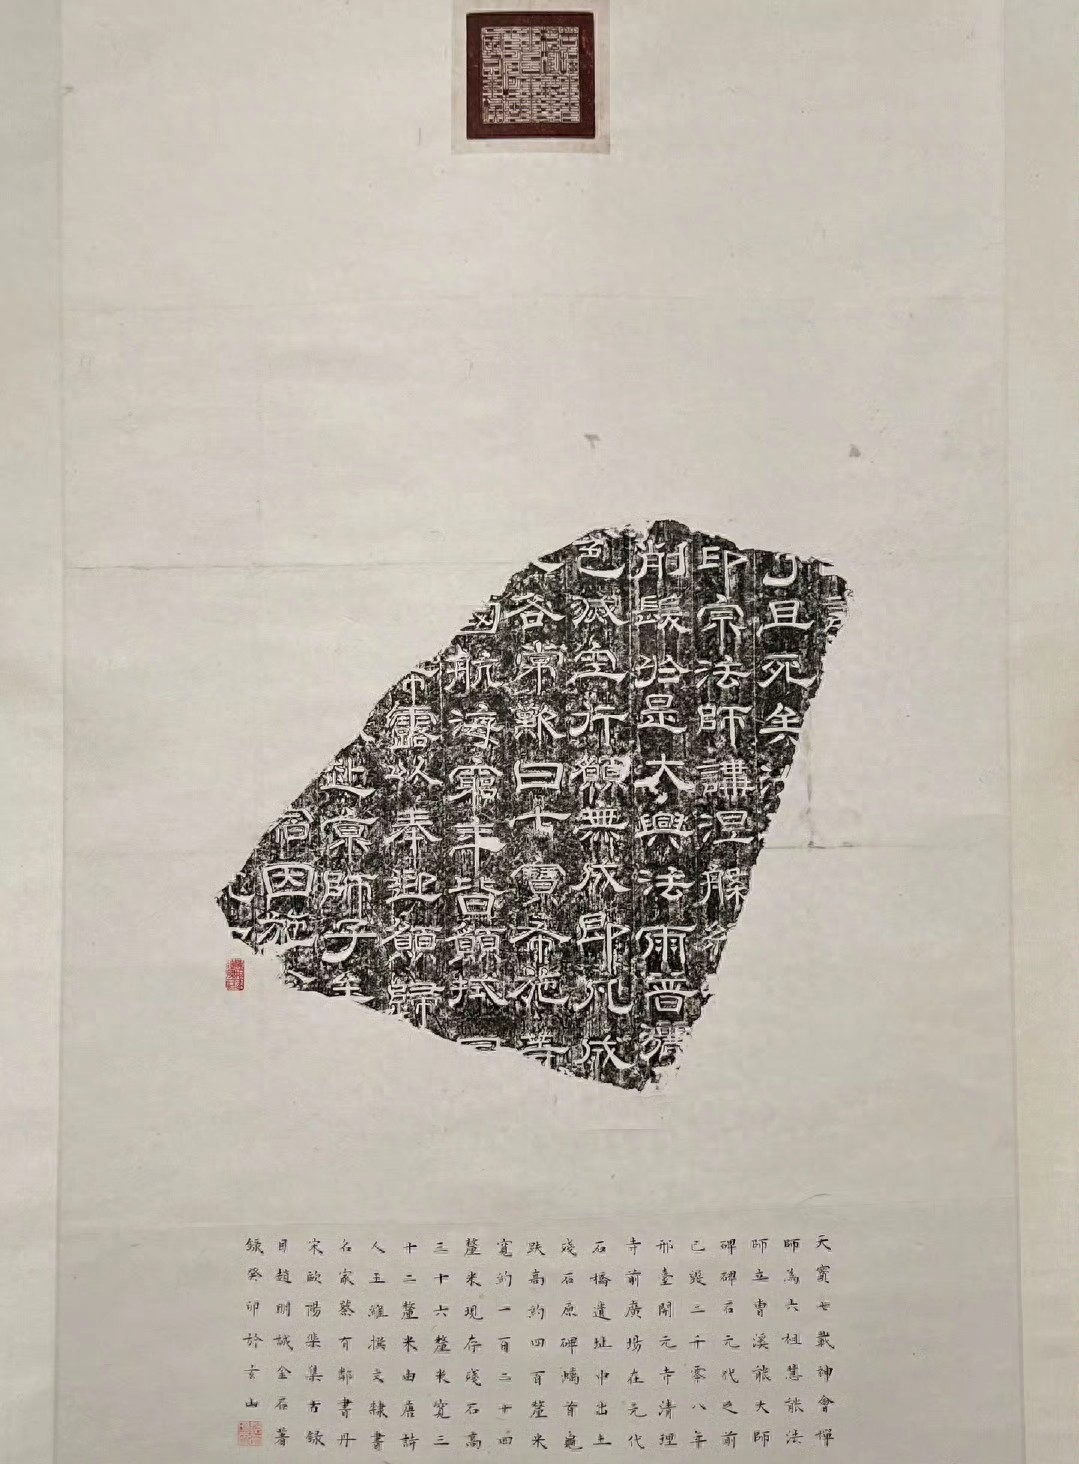 且死矣
印宗法師講涅槃
削髮於是大興法雨普灑
色滅空行願無成即凡成
各常歎曰七寶布施等
國航海窮年皆願拭
露以奉迎願歸
赴京師子牟
因施
天寶七載神會禪
師為六祖慧能法
師立曹溪能大師
碑碑石元代之前
已毀二千零八年
邢臺開元寺清理
寺前廣場在元代
石橋遺址中出土
殘石原碑螭首龜
趺高約四百釐米
寬約一百三十四
釐米現存殘石高
三十六釐米寬三
十二釐米由唐詩
人王維撰文隸書
名家蔡有鄰書丹
宋歐陽棐集古錄
目趙明誠金石著
錄癸卯於玄山